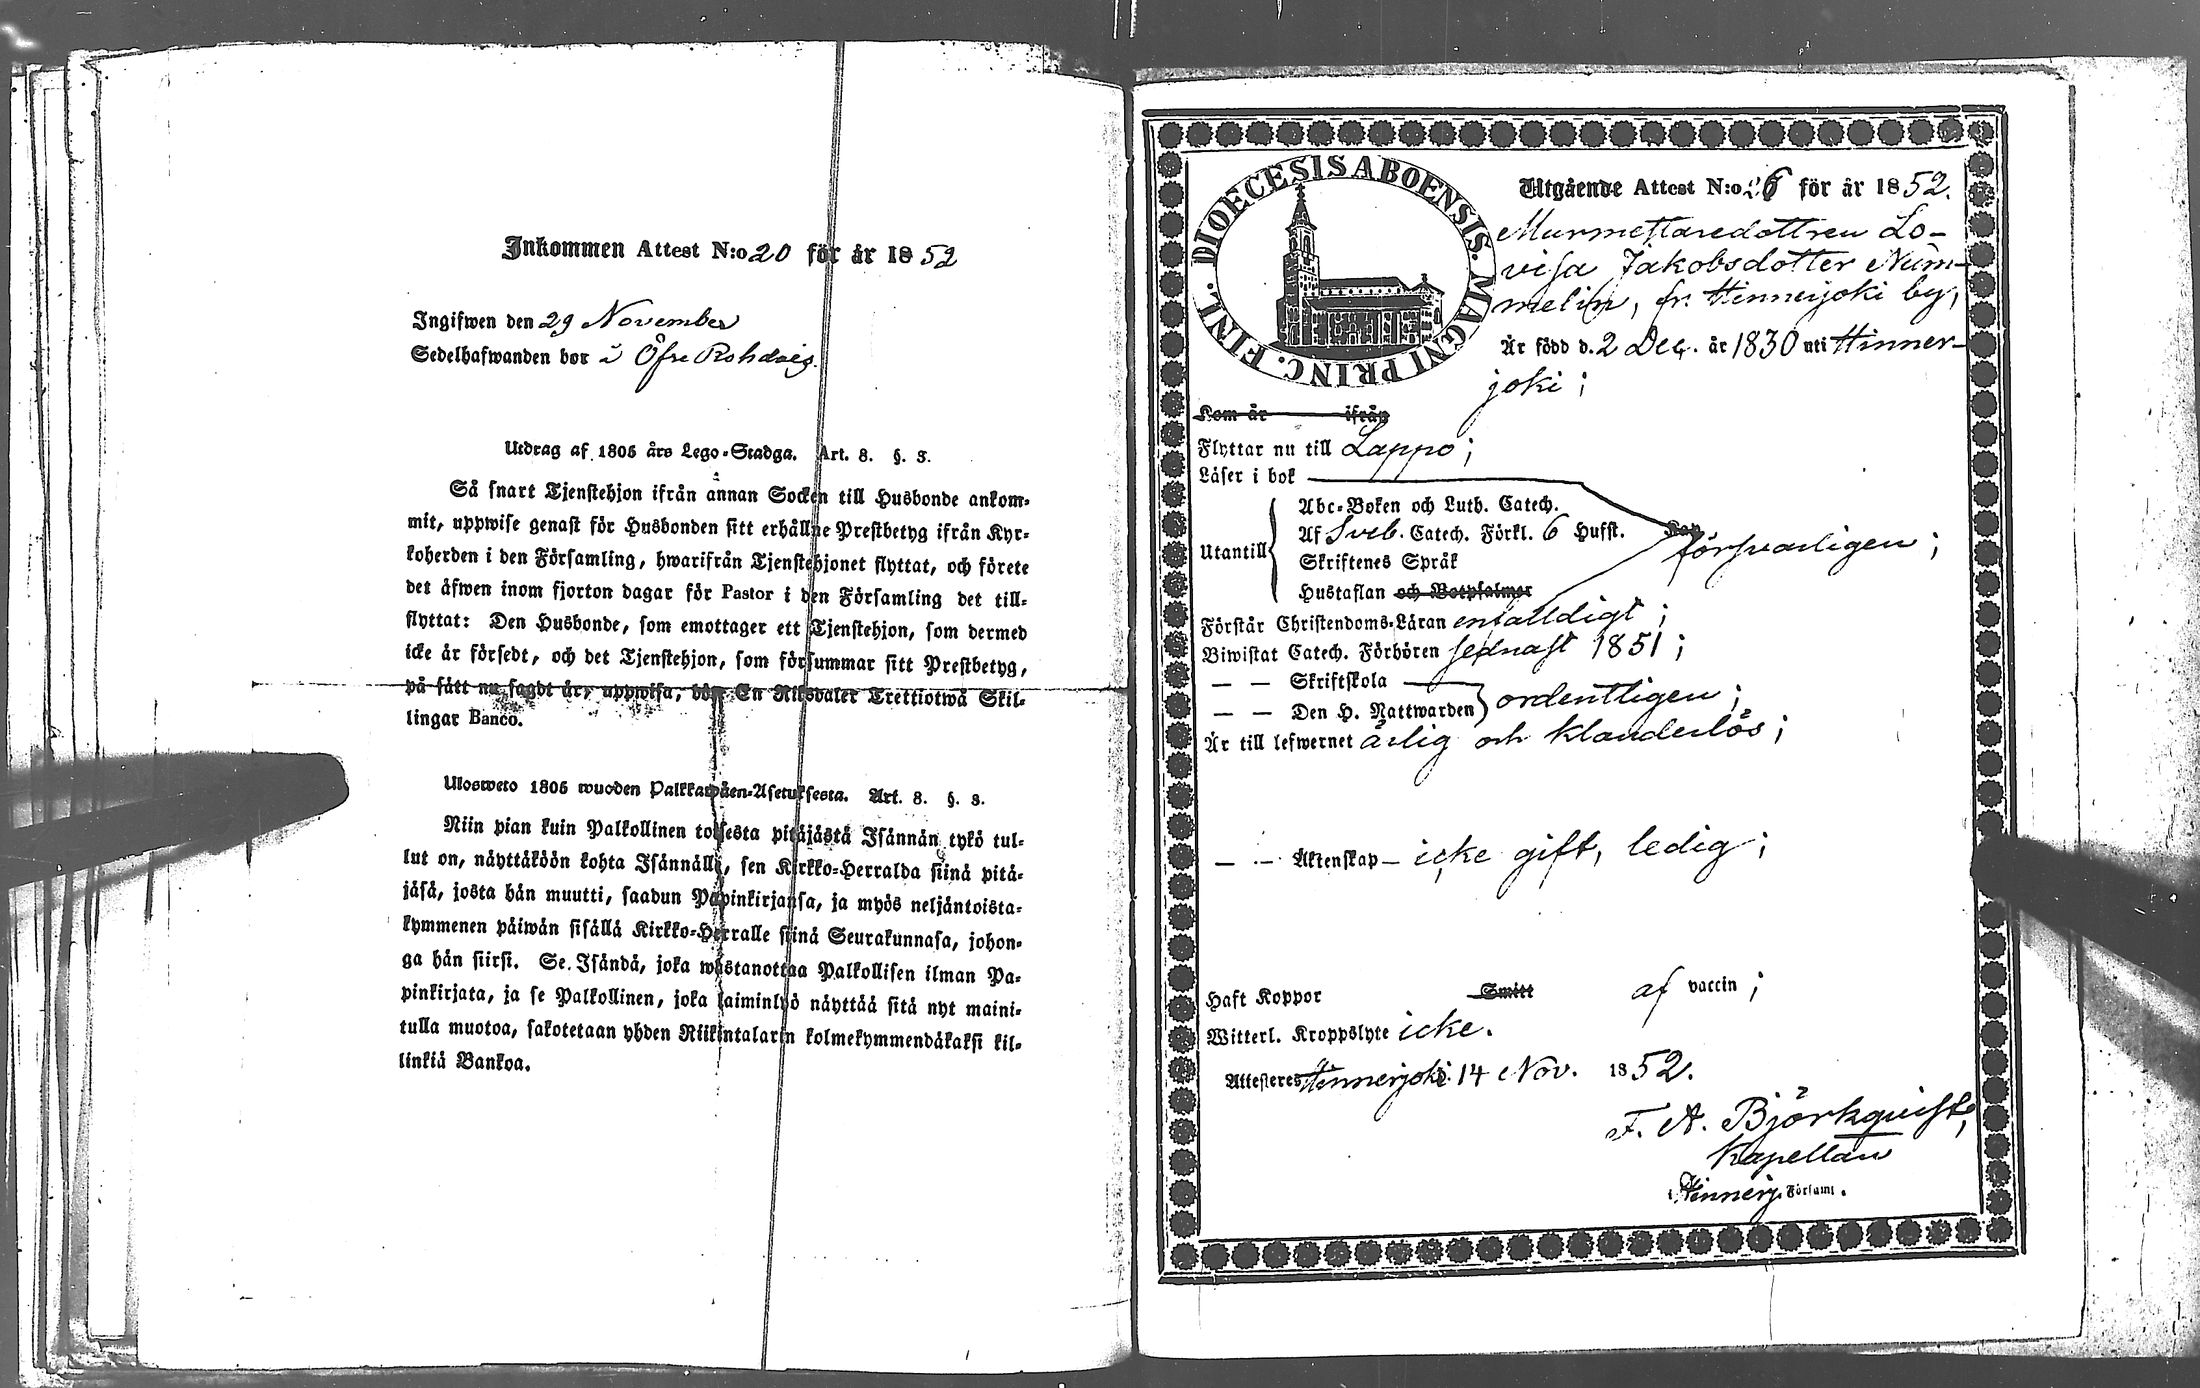 Inkommen Attest N:o 20 för år 1852
Ingifwen den 29 November
Sedelhafwanden bor i Öfre Rohdais.
Utdrag af 1805 års Lego-Stadga. Art. 8. §. 3.
Så snart Tjenstehjon ifrån annan Socken till Husbonde ankom-
mit, uppwise genast för Husbonden sitt erhållne Prestbetyg ifrån Kyr-
koherden i den Församling, hwarifrån Tjenstehjonet flyttat, och förete
det äfwen inom fjorton dagar för Pastor i den Församling det till-
flyttat: Den Husbonde, som emottager ett Tjenstehjon, som dermed
icke är försedt, och det Tjenstehjon, som försummar sitt Prestbetyg,
på sätt nu sagdt är, uppwisa, böte En Riksdaler Trettiotwå Skil-
lingar Banco.
Ulosweto 1805 wuoden Palkkawäen-Asetuksesta. Art. 8. §. 3.
Niin pian kuin Palkollinen toisesta pitäjästä Isännän tykö tul-
lut on, näyttäköön kohta Isännälle, sen Kirkko-Herralda siinä pitä-
jäsä, josta hän muutti, saadun Papinkirjansa, ja myös neljäntoista-
kymmenen päiwän sisällä Kirkko-Herralle siinä Seurakunnasa, johon-
ga hän siirsi. Se Isändä, joka wastanottaa Palkollisen ilman Pa-
pinkirjata, ja se Palkollinen, joka laiminlyö näyttää sitä nyt maini-
tulla muotoa, sakotetaan yhden Riikintalarin kolmekymmendäkaksi kil-
linkiä Bankoa.
DIOECESIS ABOENSIS. MAGNI PRINC. FINL.
Utgående Attest N:o 26 för år 1852.
Murmestaredottren Lo-
visa Jakobsdotter Num-
melin, fr. Hinnerjoki by,
Är född d. 2 Dec. år 1830 uti Hinner-
joki;
Kom år ifrån
Flyttar nu till Lappo;
Läser i bok
Abc-Boken och Luth. Catech.
Utantill Af Sveb. Catech. Förkl. 6 Hufst. Kap. försvarligen;
Skriftenes Språk
Hustaflan och Botpsalmer
Förstår Christendoms-Läran enfaldigt;
Biwistat Catech. Förhören sednast 1851;
— — Skriftskola
— — Den H. Nattwarden ordentligen;
Är till lefwernet ärlig och klanderlös;
— — Äktenskap – icke gift, ledig;
Haft Koppor Smitt af vaccin;
Witterl. Kroppslyte icke.
Attesteres Hinnerjoki 14 Nov. 1852.
F. A. Björkquist,
Kapellan
i Hinnerj. Församl.